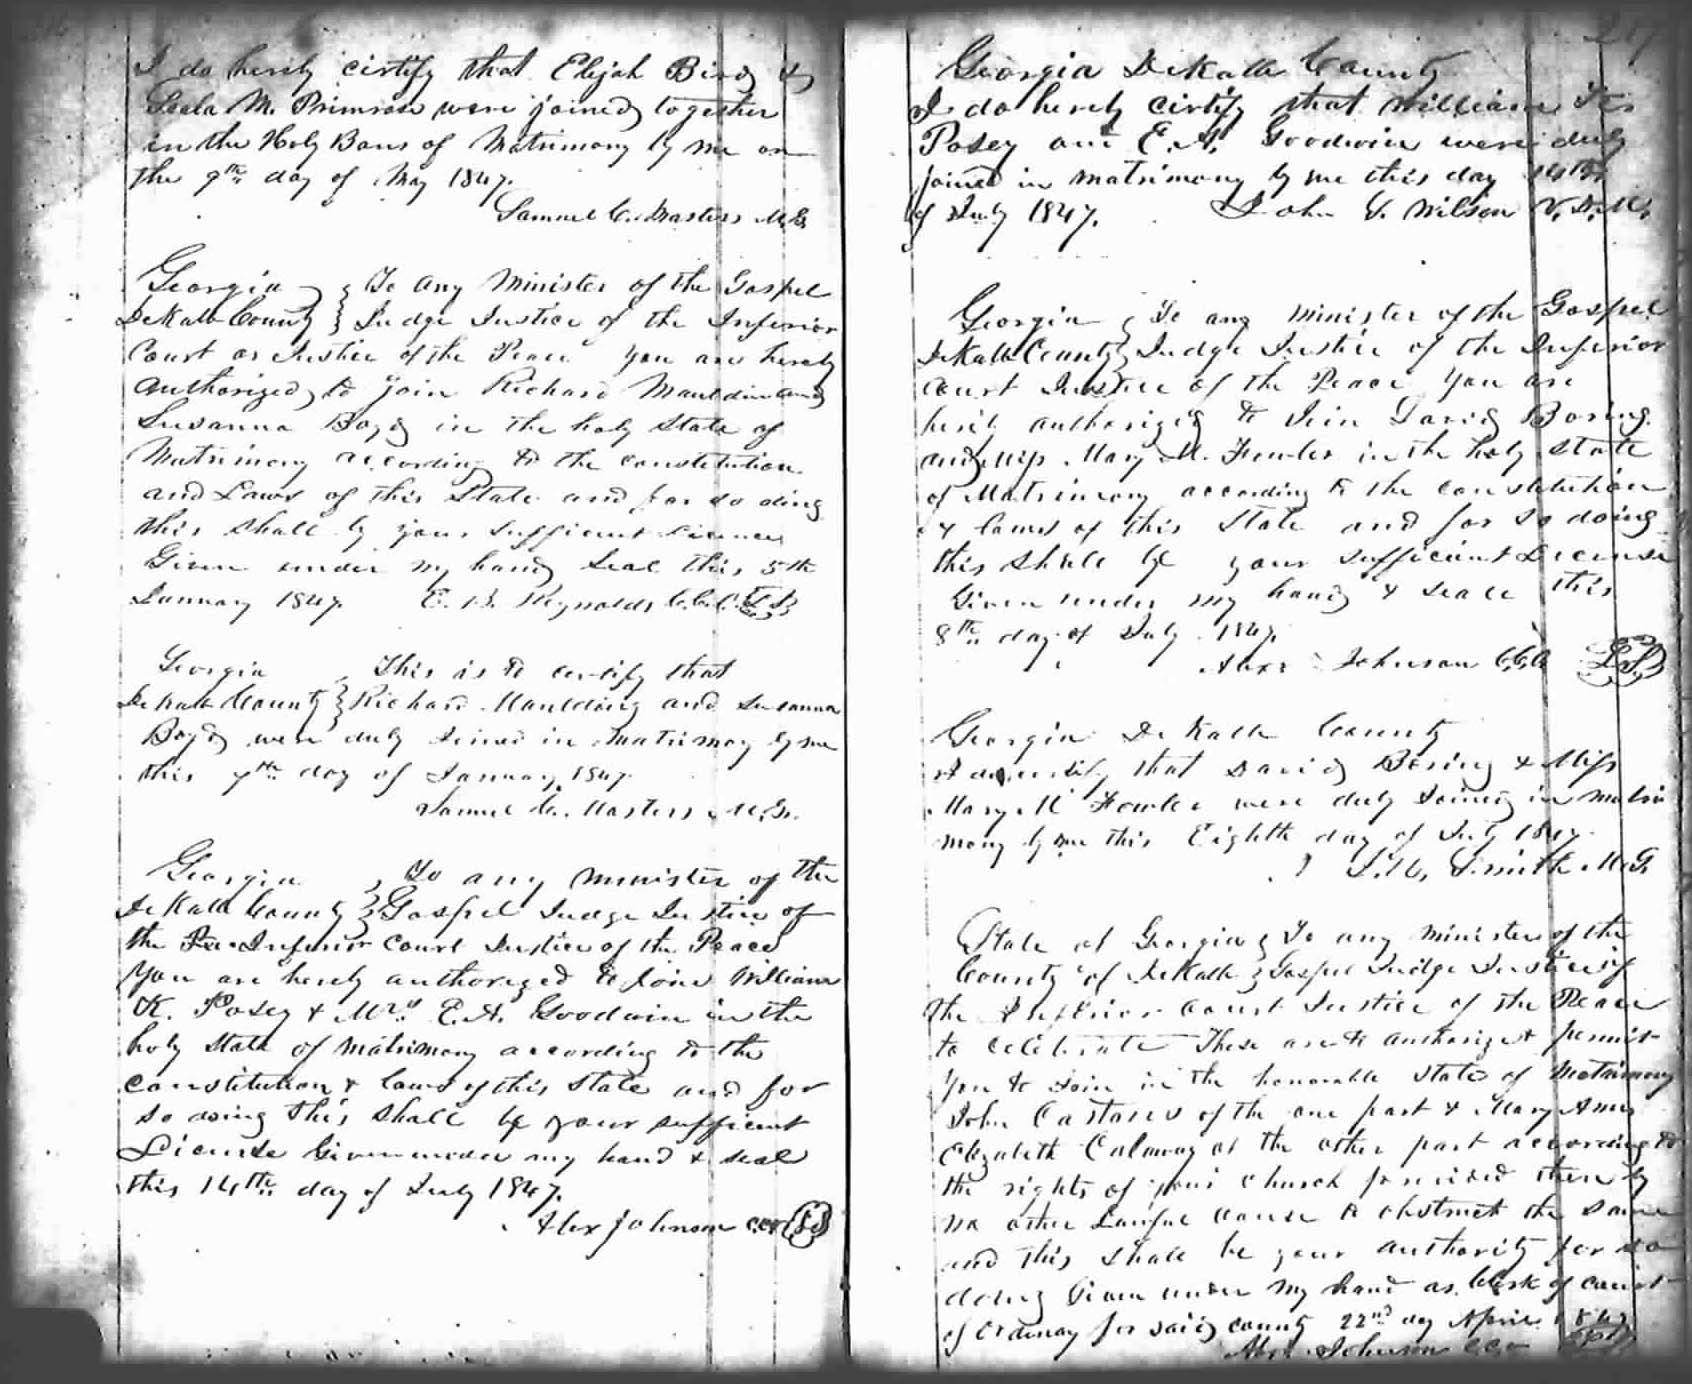 I do herely certify that Elijah Bird &
Leela M. Primrose were joined together
in the Holy Bans of Matrimony by me on
the 9th day of May 1847.
Samuel C. Masters M.G.
Georgia } To any Minister of the Gospel
DeKalb County } Judge Justice of the Inferior
Court or Justice of the Peace you are herely
authorized to join Richard Mauldin and
Susanna Boyd in the holy State of
Matrimony according to the constitution
and Laws of this State and for so doing
this shall by your sufficient License
Given under my hand Seal this 5th
January 1847. E. B. Reynolds C.C.O. L.S.
Georgia } This is to certify that
DeKalb County } Richard Maulding and Susanna
Boyd were duly Joined in matrimony by me
this 7th day of January 1847.
Samuel C. Masters M.G.
Georgia } To any minister of the
DeKalb County } Gospel Judge Justice of
the Inferior Court Justice of the Peace
You are herely authorized to Join William
K. Posey & Mrs. E.A. Goodwin in the
holy State of matrimony according to the
constitution & laws of this State and for
so doing this shall be your sufficient
License Given under my hand & seal
this 14th day of July 1847.
Alex Johnson CCO L.S.
Georgia DeKalb County
I do herely certify that William K.
Posey and E.A. Goodwin were duly
joined in matrimony by me this day 14th
of July 1847. John S. Wilson V.D.M.
Georgia } To any minister of the Gospel
DeKalb County } Judge Justice of the Inferior
Court Justice of the Peace You are
herely authorized to Join David Boring
and Miss Mary M. Fowler in the holy State
of Matrimony according to the constitution
& laws of this State and for so doing
this shall be your sufficient License
Given under my hand & seale this
8th day of July 1847.
Alexr Johnson C.C.O. L.S.
Georgia DeKalb County
I do certify that David Boring & Miss
Mary M Fowler were duly Joined in matri
mony by me this Eighth day of July 1847.
Smith M.G.
State of Georgia } To any minister of the
County of DeKalb } Gospel Judge Justice of
the Inferior Court Justice of the Peace
to celebrate These are to authorize & permit
you to Join in the honorable State of Matrimony
John of the one part & Mary Ann
Elizabeth Calaway of the other part according to
the rights of your Church provided there by
no other Lawful cause to obstruct the same
and this shall be your authority for so
doing Given under my hand as Clerk of Court
of Ordinay for said county 22nd day April 1847
Alexr Johnson CCO L.S.